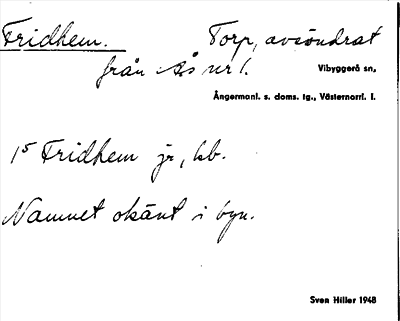 Fridhem. Torp, avsöndrat
från Ås nr 1. Vibyggerå sn,
Ångermanl. s. doms. tg., Västernorrl. l.
1⁵ Fridhem jr, kb.
Namnet okänt i byn.
Sven Hiller 1948